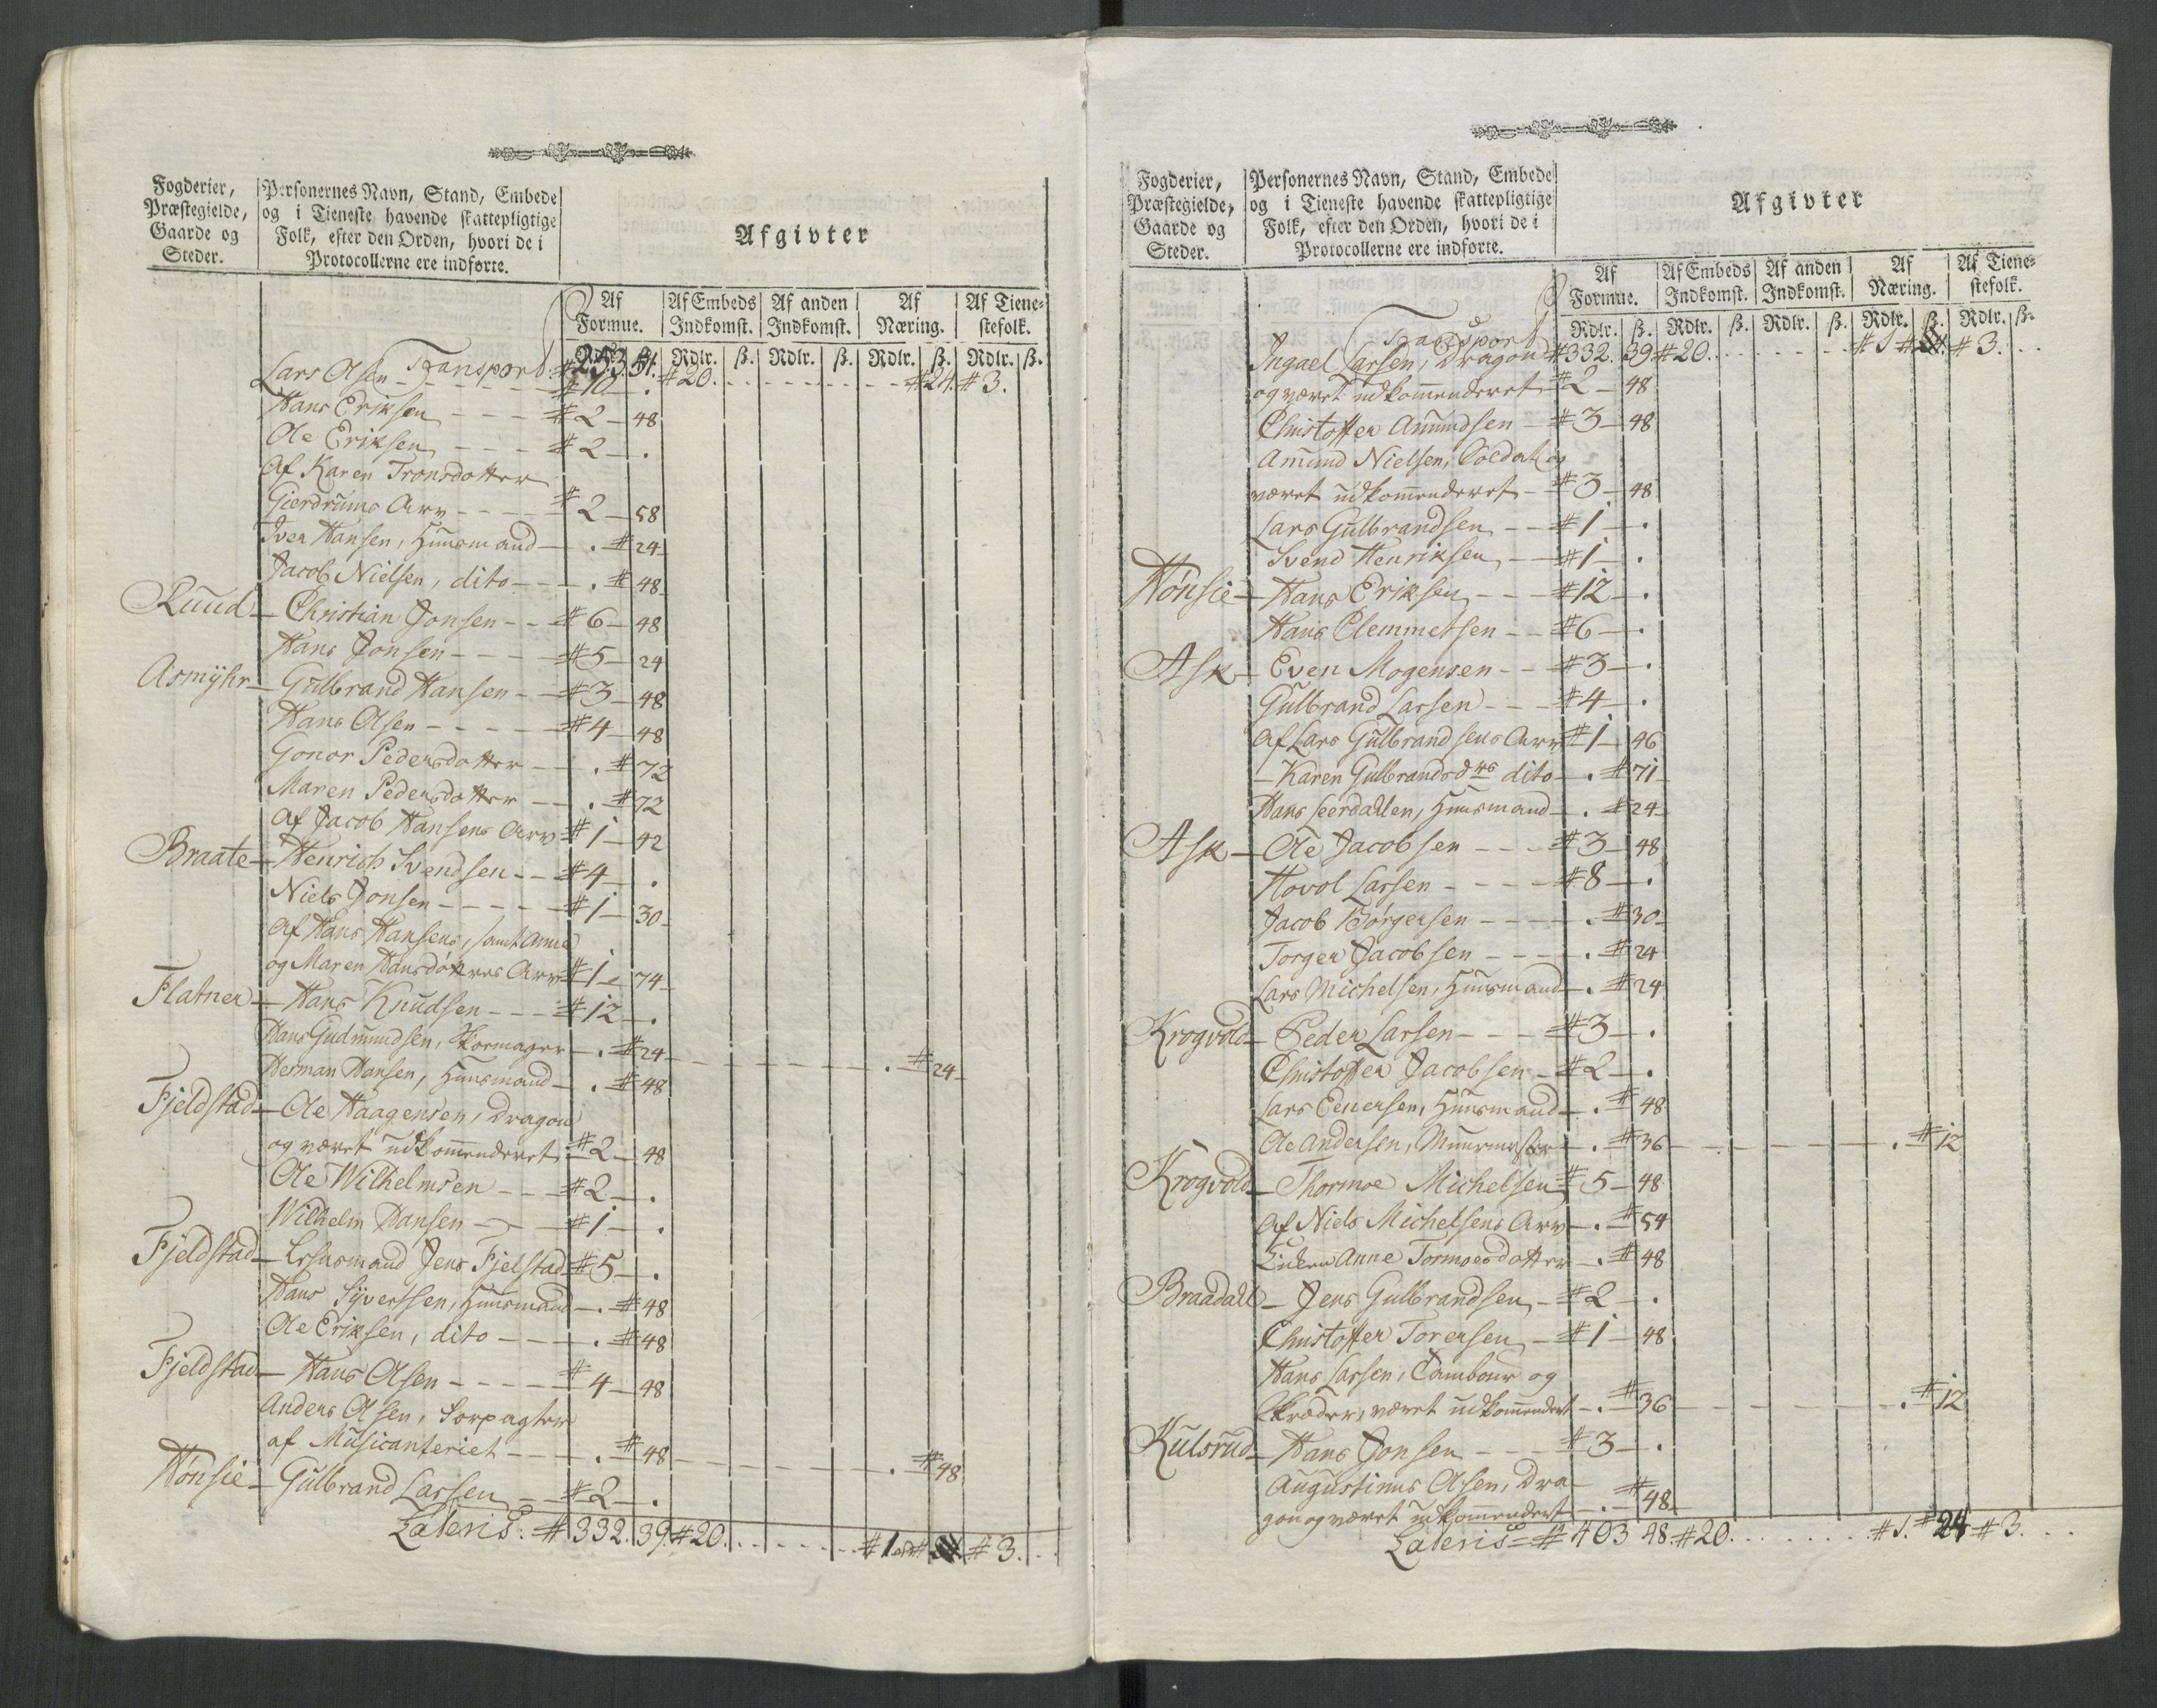 Fogderier, Præstegielde, Gaarde og Steder.
Personernes Navn, Stand, Embede og i Tieneste havende skattepligtige Folk, efter den Orden, hvori de i Protocollerne ere indførte.
Afgivter
Af Formue. Af Embeds Indkomst. Af anden Indkomst. Af Næring. Af Tienestefolk.
Rdlr. ß. Rdlr. ß. Rdlr. ß. Rdlr. ß. Rdlr. ß.
Transport # 253 51. # 20. # 24. # 3.
Lars Olsen # 10 .
Hans Eriksen # 2 48
Ole Eriksen # 2 .
Af Karen Tronsdotter
Gierdrums Arv # 2 58
Iver Hansen, Huusmand . # 24
Jacob Nielsen, dito . # 48
Ruud Christian Jonsen # 6 48
Hans Jonsen # 5 24
Asmÿhr Gulbrand Hansen # 3 48
Hans Olsen # 4 48
Gonor Pedersdotter . # 72
Maren Pedersdotter . # 72
Af Jacob Hansens Arv # 1 42
Braate Henrich Svendsen # 4 .
Niels Jonsen # 1 30
Af Hans Hansens, samt Anne
og Maren Hansdøtres Arv # 1 74
Flatner Hans Knudsen # 12 .
Hans Gudmundsen, Skomager . # 24 . # 24
Herman Hansen, Huusmand . # 48
Fjeldstad Ole Haagensen, Dragon
og været udkommenderet # 2 48
Ole Wilhelmsen # 2 .
Wilhelm Hansen # 1 .
Fjeldstad Lehnsmand Jens Fjelstad # 5 .
Hans Sÿverssen, Huusmand . # 48
Ole Eriksen, dito . # 48
Fjeldstad Hans Olsen # 4 48
Anders Olsen, Forpagter
af Musicanteriet . # 48 . # 48
Hönsie Gulbrand Larsen # 2 .
Lateris # 332. 39. # 20. # 1 # 3.
Fogderier, Præstegielde, Gaarde og Steder.
Personernes Navn, Stand, Embede og i Tieneste havende skattepligtige Folk, efter den Orden, hvori de i Protocollerne ere indførte.
Afgivter
Af Formue. Af Embeds Indkomst. Af anden Indkomst. Af Næring. Af Tienestefolk.
Rdlr. ß. Rdlr. ß. Rdlr. ß. Rdlr. ß. Rdlr. ß.
Transport # 332. 39 # 20. # 1 # 3.
Ingael Larsen, Dragon
og været udkommenderet # 2 48
Christoffer Amundsen # 3 48
Amund Nielsen, Soldat og
været udkommenderet # 3 48
Lars Gulbrandsen # 1 .
Svend Henriksen # 1 .
Hönsie Hans Eriksen # 12 .
Hans Clemmetsen # 6 .
Ask Even Mogensen # 3 .
Gulbrand Larsen # 4 .
Af Lars Gulbrandsens Arv # 1 46
Karen Gulbrandsdtrs dito . # 71
Hans Leerdallen, Huusmand . # 24
Ask Ole Jacobsen # 3 48
Hovol Larsen # 8 .
Jacob Börgersen . # 30
Torger Jacobsen . # 24
Lars Michelsen, Huusmand . # 24
Krogvold Peder Larsen # 3 .
Christoffer Jacobsen # 2 .
Lars Eenersen, Huusmand . # 48
Ole Andersen, Muurmester . # 36 . # 12
Krogvold Thormoe Michelsen # 5 48
Af Niels Michelsens Arv . # 54
Enken Anne Tormoesdotter . # 48
Braadall Jens Gulbrandsen # 2 .
Christoffer Torersen # 1 48
Hans Larsen, Tambour og
Skræder, været udkommendert . # 36 . # 12
Kulsrud Hans Jonsen # 3 .
Augustinus Olsen, Dra-
gon og været udkommendert . # 48
Lateris # 403 48. # 20. # 1. # 24 # 3.